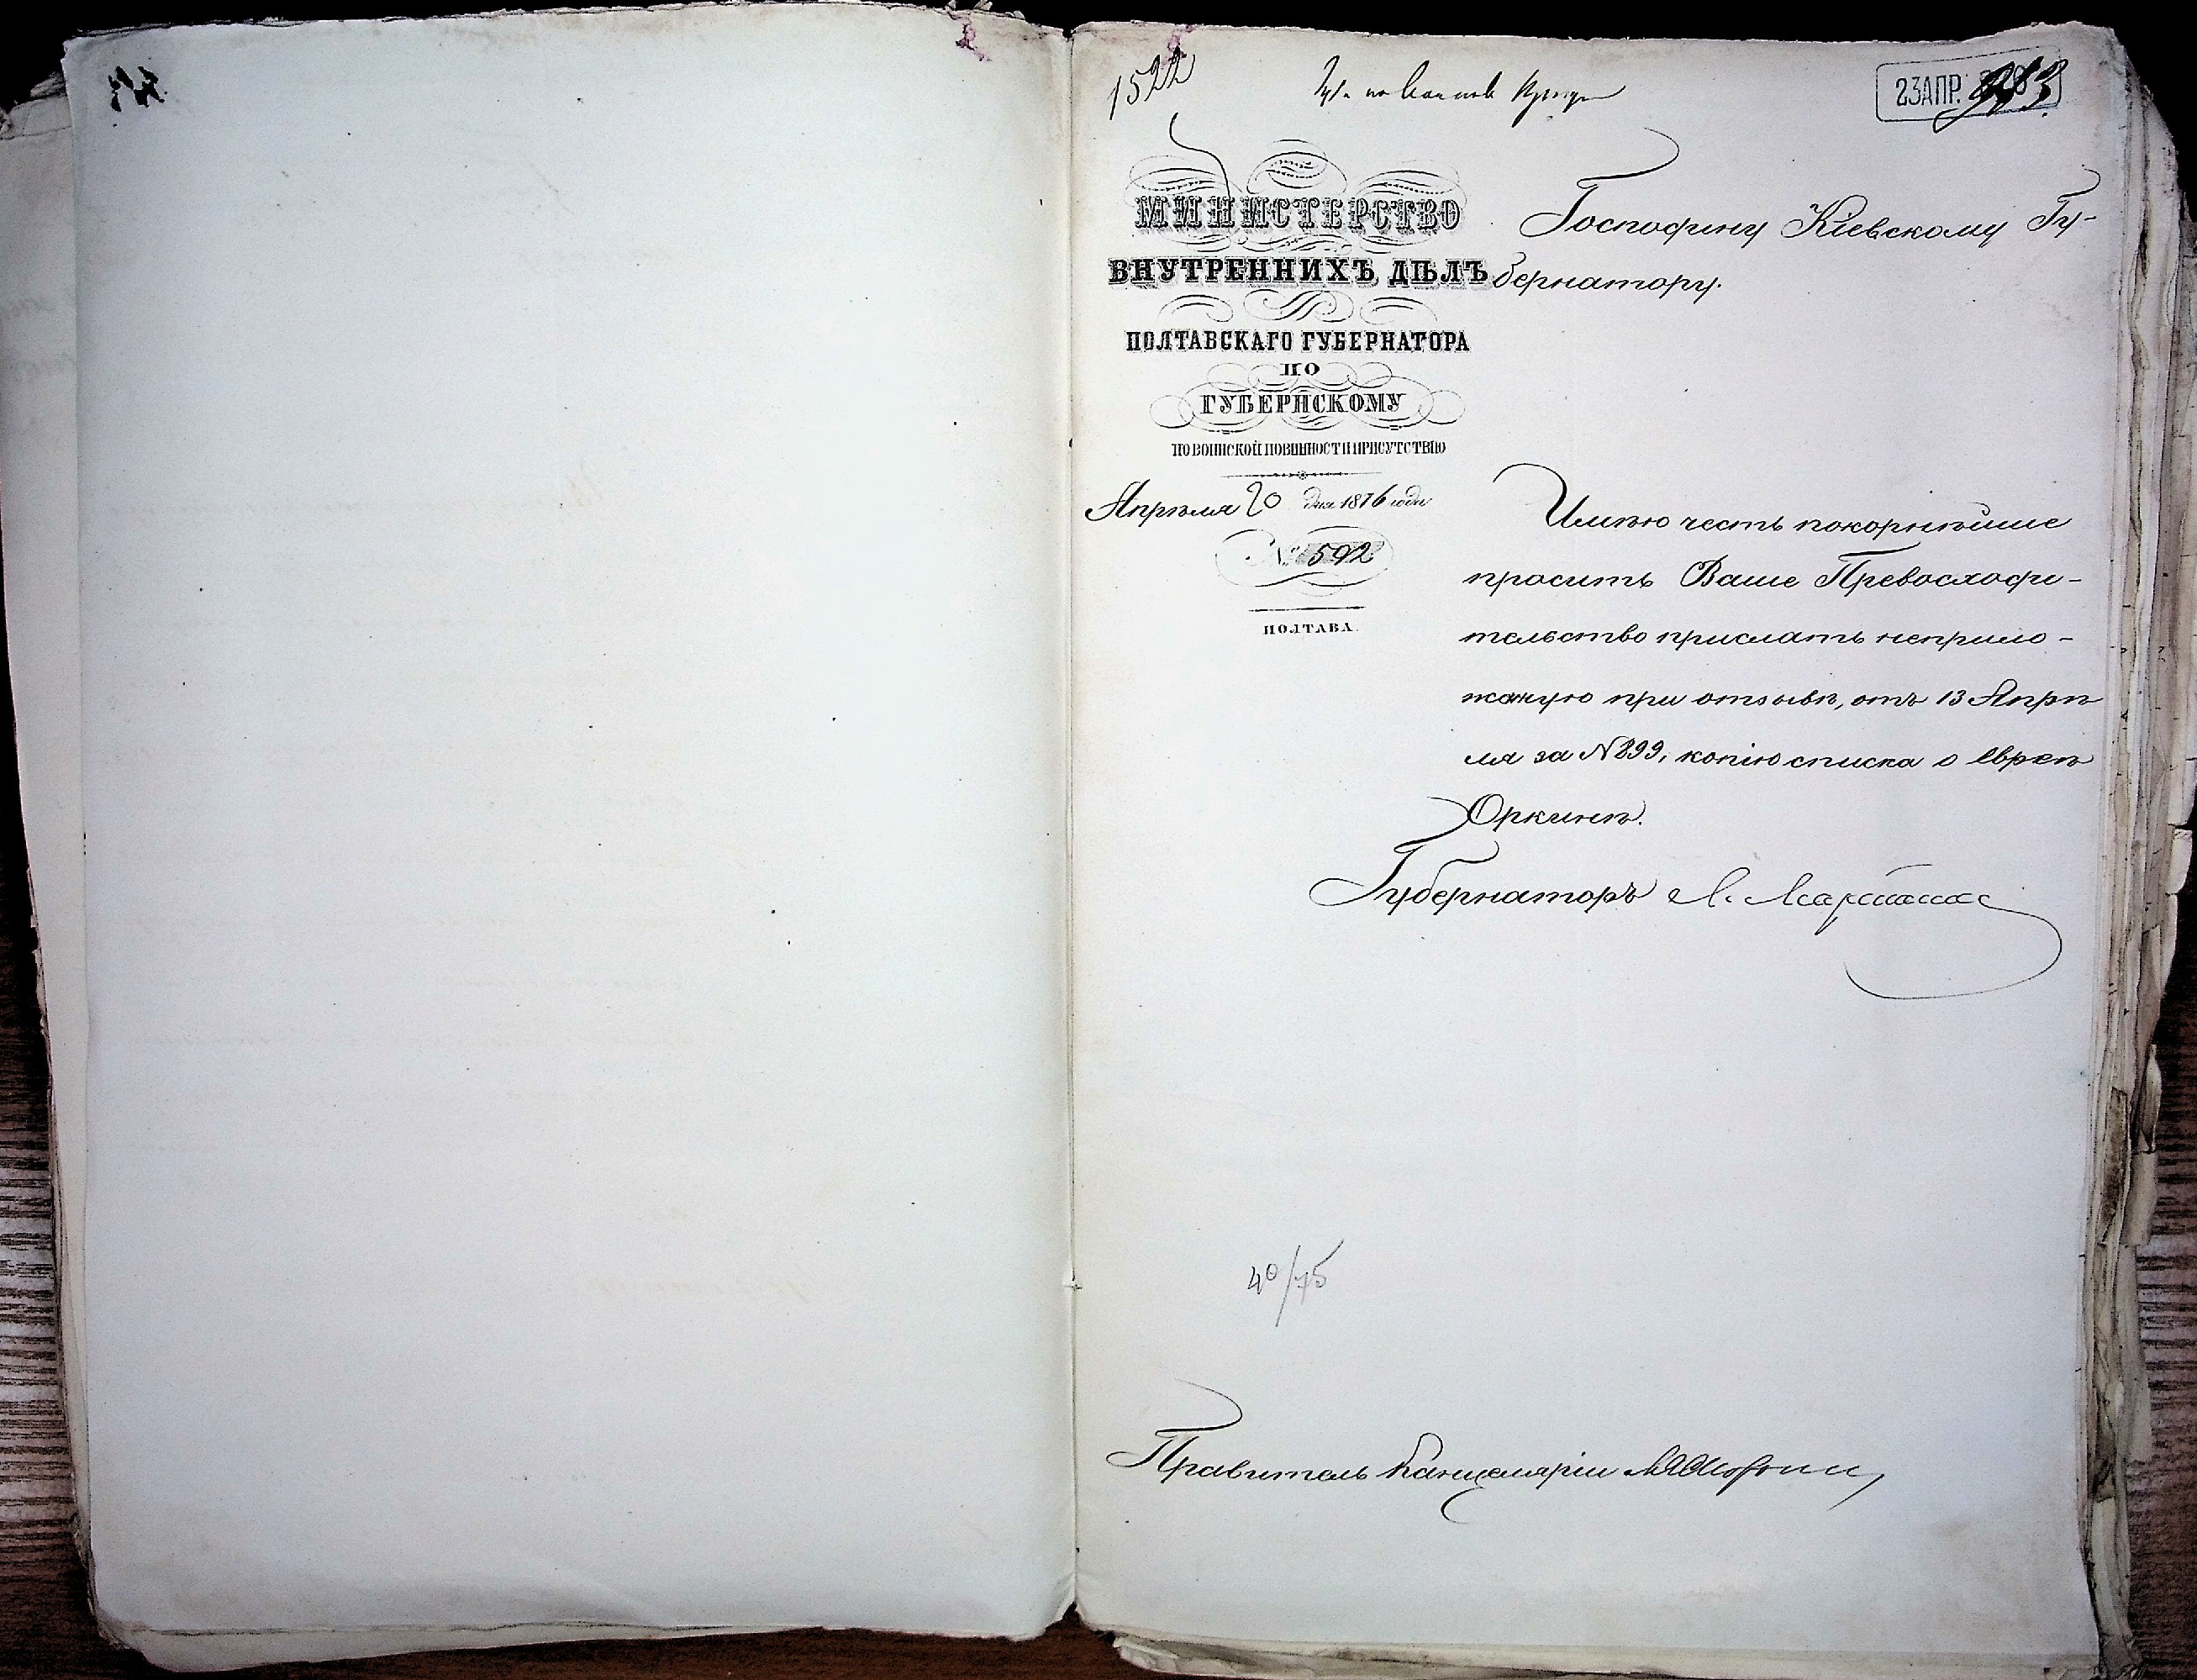 1522
23 АПР.
МИНИСТЕРСТВО
ВНУТРЕННИХЪ ДѢЛЪ
ПОЛТАВСКАГО ГУБЕРНАТОРА
ПО
ГУБЕРНСКОМУ
ПО ВОИНСКОЙ ПОВИННОСТИ ПРИСУТСТВІЮ
Апрѣля 20 дня 1876 года
№ 592
ПОЛТАВА.
Господину Кіевскому Гу-
бернатору.
Имѣю честь покорнѣйше
просить Ваше Превосходи-
тельство прислать неприло-
жоную при отзывѣ, отъ 13 Апрѣ
ля за N 899, копію списка о евреѣ
Оркинѣ.
Губернаторъ
40/75
Правитель Канцеляріи